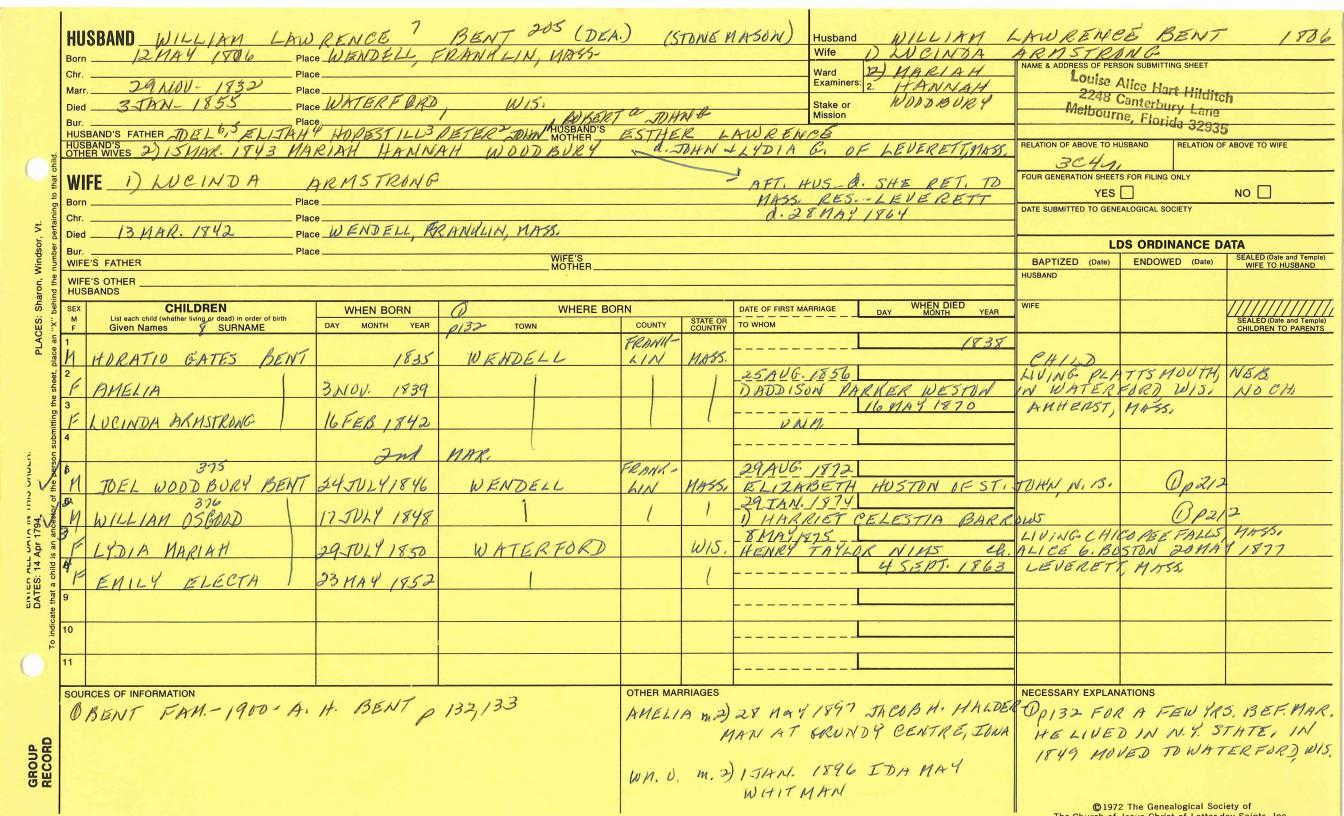 HUSBAND WILLIAM LAWRENCE 7 BENT 205 (DEA.) (STONE MASON)
Born 12 MAY 1806 Place WENDELL, FRANKLIN, MASS.
Chr. Place
Marr. 29 NOV. 1832 Place
Died 3 JAN- 1855 Place WATERFORD, WIS.
Bur. Place
ROBERT A JOHN B
HUSBAND'S FATHER JOEL 6,5 ELIJAH 4 HOPESTILL 3 PETER 2 JOHN 1 HUSBAND'S MOTHER ESTHER LAWRENCE
HUSBAND'S OTHER WIVES 2) 15 MAR. 1843 MARIAH HANNAH WOODBURY d. JOHN & LYDIA G. OF LEVERETT, MASS.
Husband WILLIAM LAWRENCE BENT 1806
Wife 1) LUCINDA ARMSTRONG
Ward Examiners: 1. 2) MARIAH
2. HANNAH
Stake or Mission WOODBURY
NAME & ADDRESS OF PERSON SUBMITTING SHEET
Louise Alice Hart Hilditch
2248 Canterbury Lane
Melbourne, Florida 32935
RELATION OF ABOVE TO HUSBAND RELATION OF ABOVE TO WIFE
3C4r.
FOUR GENERATION SHEETS FOR FILING ONLY
YES NO
DATE SUBMITTED TO GENEALOGICAL SOCIETY
WIFE 1) LUCINDA ARMSTRONG
AFT. HUS. d. SHE RET. TO
MASS. RES. - LEVERETT
d. 28 MAY 1864
Born Place
Chr. Place
Died 13 MAR. 1842 Place WENDELL, FRANKLIN, MASS.
Bur. Place
WIFE'S FATHER WIFE'S MOTHER
WIFE'S OTHER HUSBANDS
LDS ORDINANCE DATA
BAPTIZED (Date) ENDOWED (Date) SEALED (Date and Temple) WIFE TO HUSBAND
HUSBAND
WIFE
SEALED (Date and Temple) CHILDREN TO PARENTS
SEX M F
CHILDREN
List each child (whether living or dead) in order of birth
Given Names 8 SURNAME
WHEN BORN
DAY MONTH YEAR
① p132
WHERE BORN
TOWN COUNTY STATE OR COUNTRY
DATE OF FIRST MARRIAGE
TO WHOM
WHEN DIED
DAY MONTH YEAR
1 M HORATIO GATES BENT 1835 WENDELL FRANK-LIN MASS. 1838 CHILD
2 F AMELIA 3 NOV. 1839 25 AUG. 1856 1) ADDISON PARKER WESTON LIVING PLATTSMOUTH, NEB. IN WATERFORD, WIS. NO CH.
3 F LUCINDA ARMSTRONG 16 FEB 1842 UNM. 16 MAY 1870 AMHERST, MASS.
4
2nd MAR.
375
M JOEL WOODBURY BENT 24 JULY 1846 WENDELL FRANK-LIN MASS. 29 AUG. 1872 ELIZABETH HUSTON OF ST. JOHN, N.B. ① p212
376
M WILLIAM OSGOOD 17 JULY 1848 29 JAN. 1874 1) HARRIET CELESTIA BARROWS ① p212
3 F LYDIA MARIAH 29 JULY 1850 WATERFORD WIS. 8 MAY 1875 HENRY TAYLOR NIMS LIVING CHICOPEE FALLS, MASS. ch. ALICE G. BOSTON 20 MAY 1877
4 F EMILY ELECTA 23 MAY 1852 4 SEPT. 1863 LEVERETT, MASS.
9
10
11
SOURCES OF INFORMATION
① BENT FAM. - 1900 - A. H. BENT p 132, 133
OTHER MARRIAGES
AMELIA m. 2) 28 MAY 1897 JACOB H. HALDER
MAN AT GRUNDY CENTRE, IOWA
WM. O. m. 2) 1 JAN. 1896 IDA MAY
WHITMAN
NECESSARY EXPLANATIONS
① p132 FOR A FEW YRS. BEF. MAR.
HE LIVED IN N.Y. STATE, IN
1849 MOVED TO WATERFORD, WIS.
©1972 The Genealogical Society of
The Church of Jesus Christ of Latter-day Saints, Inc.
GROUP RECORD
ENTER ALL DATA IN THIS ORDER:
DATES: 14 Apr 1794
PLACES: Sharon, Windsor, Vt.
To indicate that a child is an ancestor of the person submitting the sheet, place an "X" behind the number pertaining to that child.